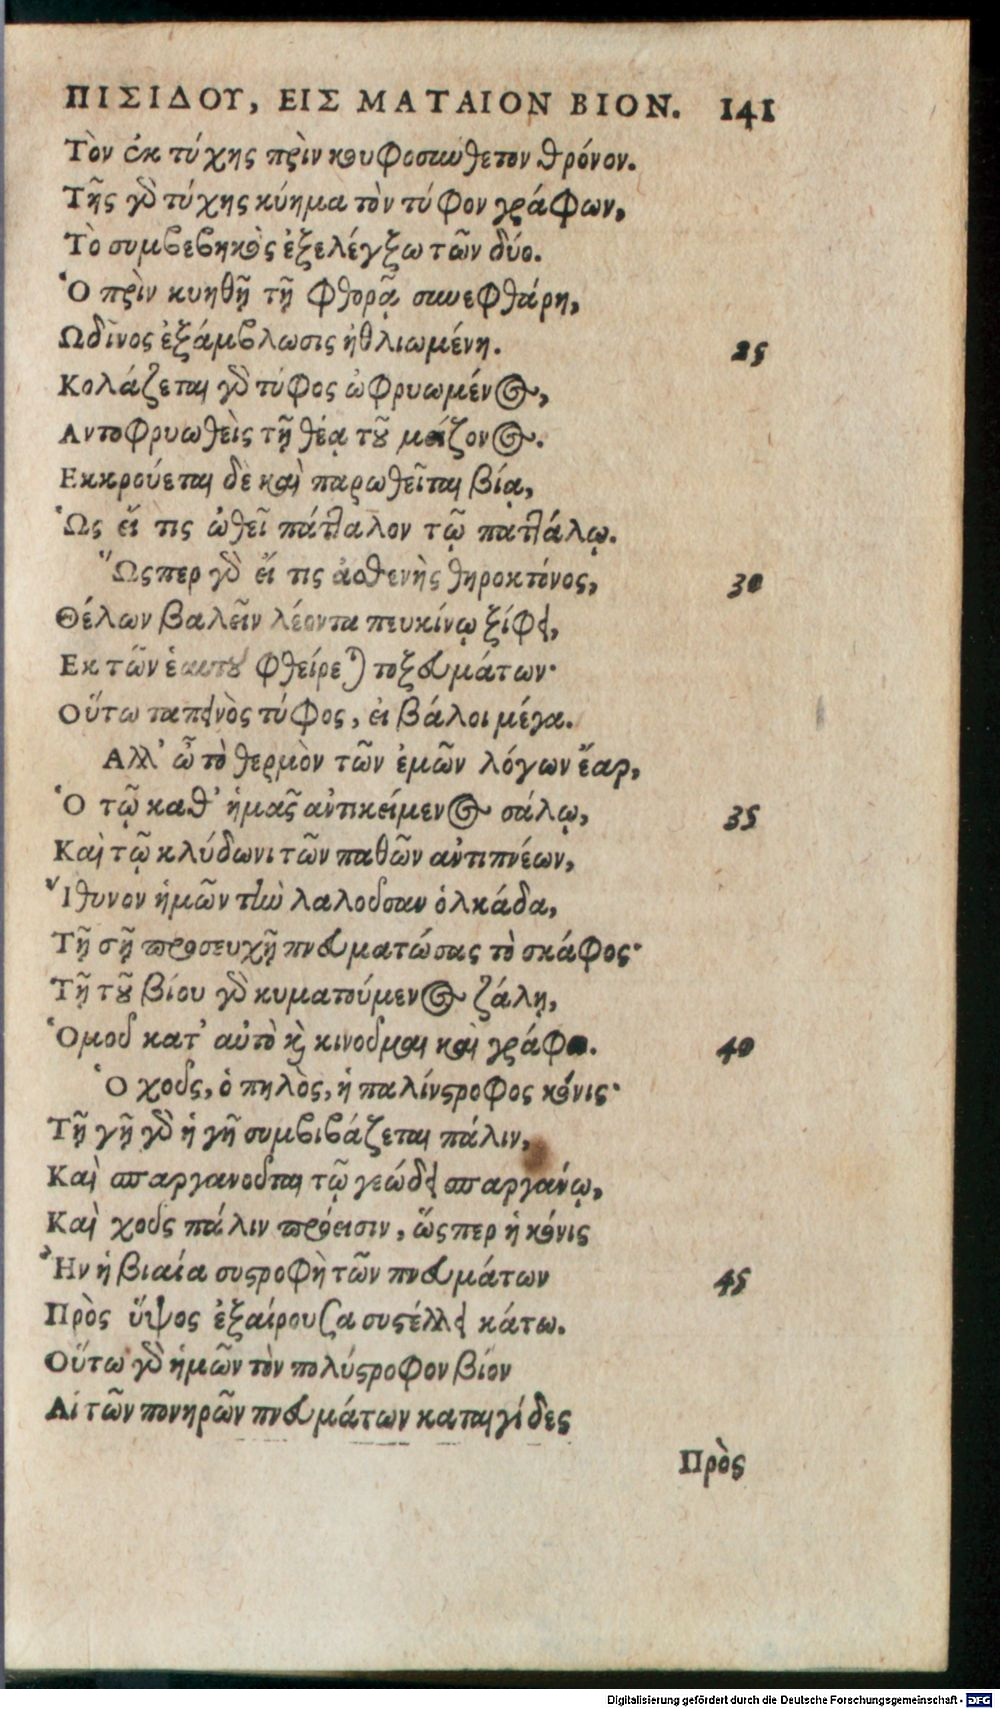 ΠΙΣΙΔΟΥ, ΕΙΣ ΜΑΤΑΙΟΝ ΒΙΟΝ. 141
Τὸν ἐκ τύχης πρὶν κουφοσύνθετον θρόνον.
Τῆς γὸ τύχης κύημα τὸν τύφον γράφων,
Τὸ συμβεβηκὸς ἐξελέγξω τῶν δύο.
Ὁ πρὶν κυηθῇ τῇ φθορᾷ συνεφθάρη,
Ωδῖνος ἐξάμβλωσις ἠθλιωμένη. 25
Κολάζεται γὸ τύφος ὠφρυωμένος,
Αντοφρυωθεὶς τῇ θέᾳ τοῦ μείζονος.
Εκκρούεται δὲ καὶ παρωθεῖται βίᾳ,
Ὡς εἴ τις ὠθεῖ πάτταλον τῷ παττάλῳ.
Ὥσπερ γὸ εἴ τις ἀσθενὴς θηροκτόνος, 30
Θέλων βαλεῖν λέοντα πευκίνῳ ξίφει,
Εκ τῶν ἑαυτοῦ φθείρεται τοξευμάτων·
Οὕτω ταπεινὸς τύφος, εἰ βάλοι μέγα.
Αλλ' ὦ τὸ θερμὸν τῶν ἐμῶν λόγων ἔαρ,
Ὁ τῷ καθ' ἡμᾶς ἀντικείμενος σάλῳ, 35
Καὶ τῷ κλύδωνι τῶν παθῶν ἀντιπνέων,
Ἴθυνον ἡμῶν τὴν λαλοῦσαν ὁλκάδα,
Τῇ σῇ προσευχῇ πνευματώσας τὸ σκάφος·
Τῇ τοῦ βίου γὸ κυματούμενος ζάλῃ,
Ὁμοῦ κατ' αὐτὸ κỳ κινοῦμαι καὶ γράφω. 40
Ὁ χοῦς, ὁ πηλὸς, ἡ παλίνστροφος κόνις·
Τῇ γῇ γὸ ἡ γῆ συμβιβάζεται πάλιν,
Καὶ σπαργανοῦται τῷ γεώδει σπαργάνῳ,
Καὶ χοῦς πάλιν πρόεισιν, ὥσπερ ἡ κόνις
Ἢν ἡ βιαία συστροφὴ τῶν πνευμάτων 45
Πρὸς ὕψος ἐξαίρουσα συστέλλει κάτω.
Οὕτω γὸ ἡμῶν τὸν πολύστροφον βίον
Αἱ τῶν πονηρῶν πνευμάτων καταιγίδες
Πρὸς
Digitalisierung gefördert durch die Deutsche Forschungsgemeinschaft - DFG